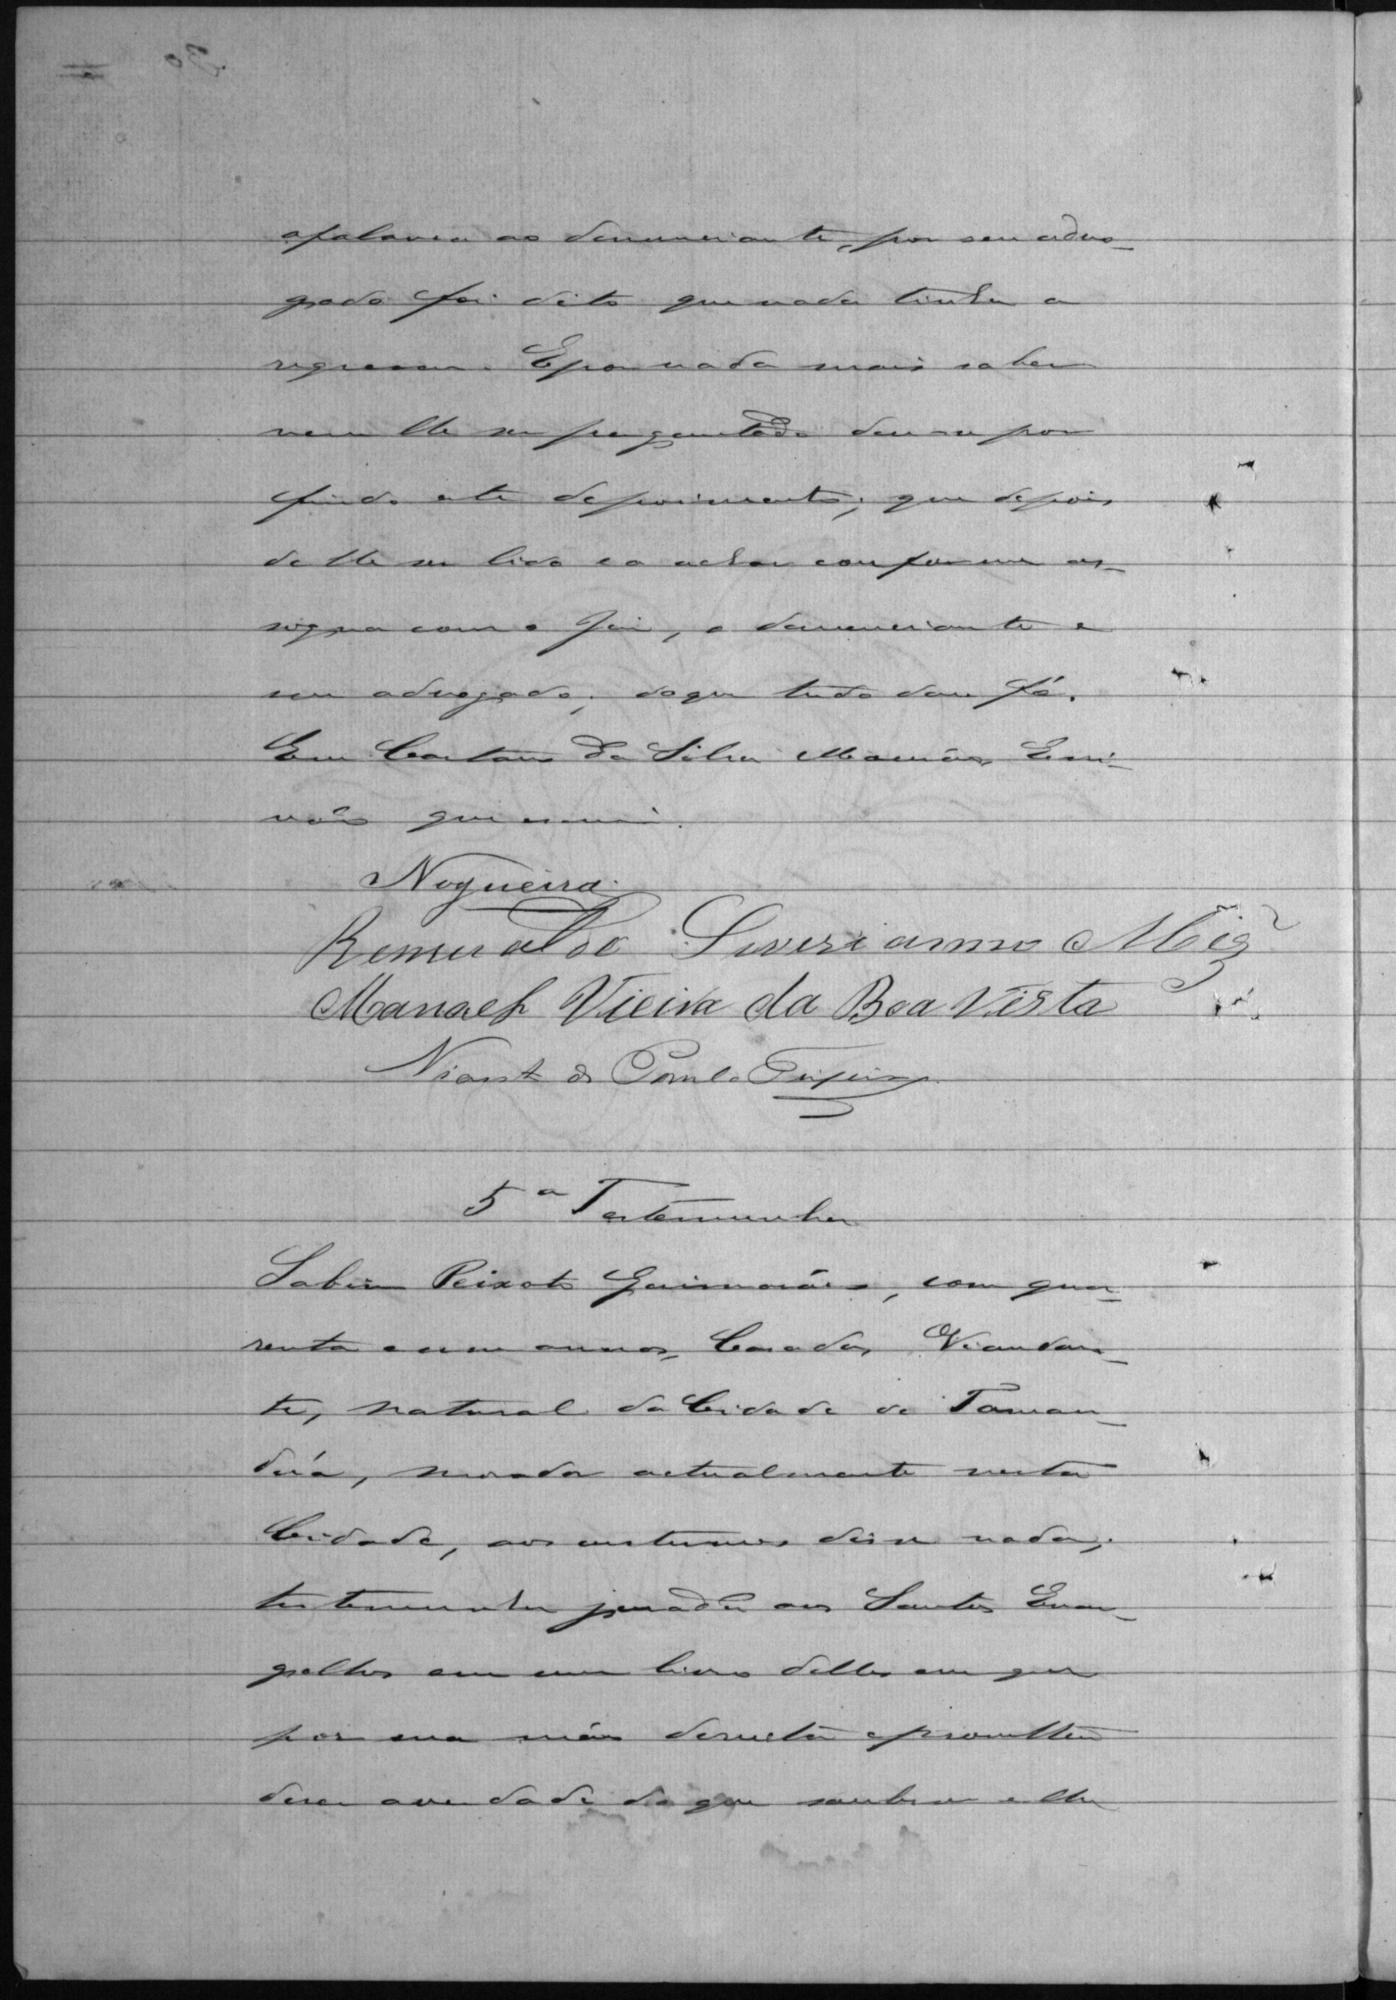 a palavra ao denunciante, por seu advo-
gado foi dito que nada tinha a
requerer. E por nada mais saber
nem lhe ser perguntado deu-se por
findo este depoimento; que depois
de lhe ser lido e o achar conforme as-
signa com o Juiz, o denunciante e
seu advogado; do que tudo dou fé.
Eu Caetano da Silva Escri-
vão que escrevi.
Nogueira
Severianno
Manoel Vieira da Boa Vista
de Paula Teixeira
5a Testemunha
Sabino Peixoto Guimarães, com qua-
renta e um annos, Casado, Viandan-
te, natural da Cidade de Taman-
duá, morador actualmente nesta
Cidade, aos custumes disse nada;
testemunha jurada aos Santos Evan-
gelhos em um livro delles em que
pôs sua mão direita e prometteu
dizer a verdade do que soubesse e lhe